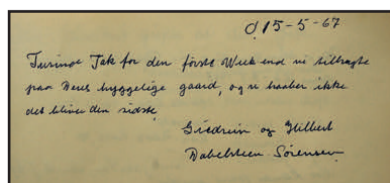 d. 15-5-67
Tusinde Tak for den første Week end vi tilbragte
paa Deres hyggelige gaard, og vi haaber ikke
det bliver den sidste
og Hilbert
Dabelsteen Sørensen